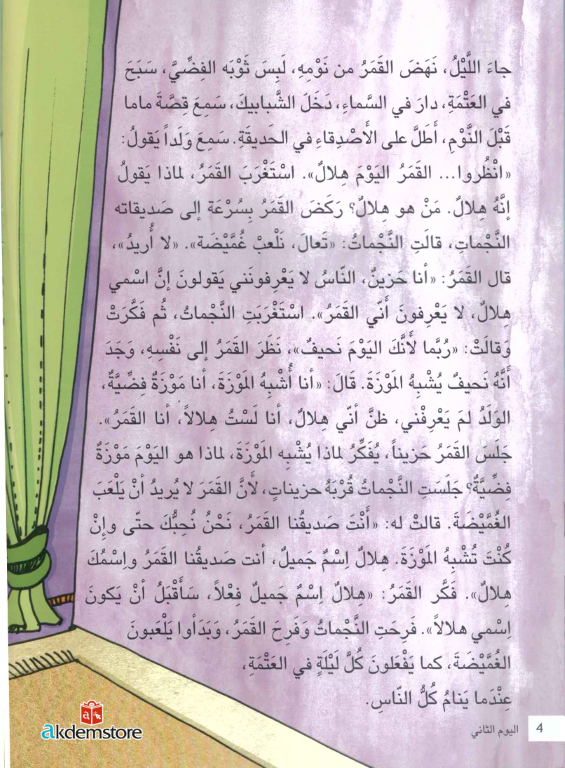 جاءَ اللَّيْلُ، نَهَضَ القَمَرُ من نَوْمِهِ، لَبِسَ ثَوْبَه الفِضِّيَّ، سَبَحَ
في العَتْمَةِ، دارَ في السَّماءِ، دَخَلَ الشَّبابيكَ، سَمِعَ قصَّةَ ماما
قَبْلَ النَّوْمِ، أَطَلَّ على الأَصْدِقاءِ في الحَديقَةِ. سَمعَ وَلَداً يَقولُ:
«انْظُروا... القَمَرُ اليَوْمَ هِلالٌ». اسْتَغْرَبَ القَمَرُ، لماذا يَقولُ
إنَّهُ هِلالٌ. مَنْ هو هِلالٌ؟ رَكَضَ القَمَرُ بِسُرْعَةٍ إلى صَديقاته
النَّجْماتِ، قالَتِ النَّجْماتُ: «تَعالَ، نَلْعبْ غُمَّيْضَة». «لا أُريدُ»،
قال القَمَرُ: «أنا حَزينٌ، النّاسُ لا يَعْرِفونَني يَقولونَ إنَّ اسْمي
هِلالٌ، لا يَعْرِفونَ أَنّي القَمَرُ». اسْتَغْرَبَتِ النَّجْماتُ، ثُم فَكَّرَتْ
وَقالَتْ: «رُبَّما لأَنَّكَ اليَوْمَ نَحيفٌ»، نَظَرَ القَمَرُ إلى نَفْسِهِ، وَجَدَ
أنَّهُ نَحيفٌ يُشْبِهُ المَوْزَةَ. قالَ: «أنا أُشْبِهُ المَوْزَةَ، أنا مَوْزَةٌ فِضِّيَّةٌ،
الوَلَدُ لمَ يَعْرِفْني، ظنَّ أنّي هِلالٌ، أنا لَسْتُ هِلالاً، أنا القَمَرُ».
جَلَسَ القَمَرُ حَزيناً، يُفَكِّرُ لماذا يُشْبِه المَوْزَةَ، لماذا هو اليَوْمَ مَوْزَةٌ
فِضِّيَّةٌ؟ جَلَسَتِ النَّجْماتُ قُرْبَهُ حزيناتٍ، لأَنَّ القَمَرَ لا يُريدُ أنْ يَلْعَبَ
الغُمَّيْضَةَ. قالتْ له: «أَنْتَ صَديقُنا القَمَرُ، نَحْنُ نُحِبُّكَ حتّى وإنْ
كُنْتَ تُشْبِهُ المَوْزَةَ. هِلالٌ اِسْمٌ جَميلٌ، أنت صَديقُنا القَمَرُ واِسْمُكَ
هِلالٌ». فَكَّر القَمَرُ: «هِلالٌ اِسْمٌ جَميلٌ فِعْلاً، سَأَقْبَلُ أنْ يَكونَ
اِسْمي هِلالاً». فَرِحَتِ النَّجْماتُ وَفَرِحَ القَمَرُ، وَبَدَأوا يَلْعَبونَ
الغُمَّيْضَةَ، كما يَفْعَلونَ كُلَّ لَيْلَةٍ في العَتْمَةِ،
عِنْدَما يَنامُ كُلُّ النّاسِ.
4 اليوم الثاني
akdemstore